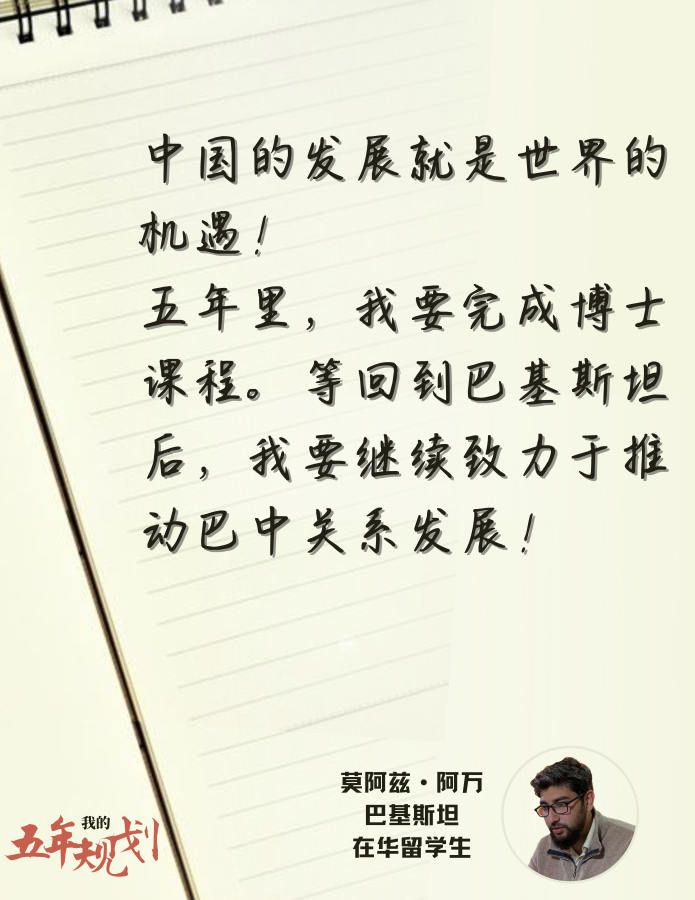 中国的发展就是世界的
机遇！
五年里，我要完成博士
课程。等回到巴基斯坦
后，我要继续致力于推
动巴中关系发展！
莫阿兹·阿万
巴基斯坦
在华留学生
我的
五年规划